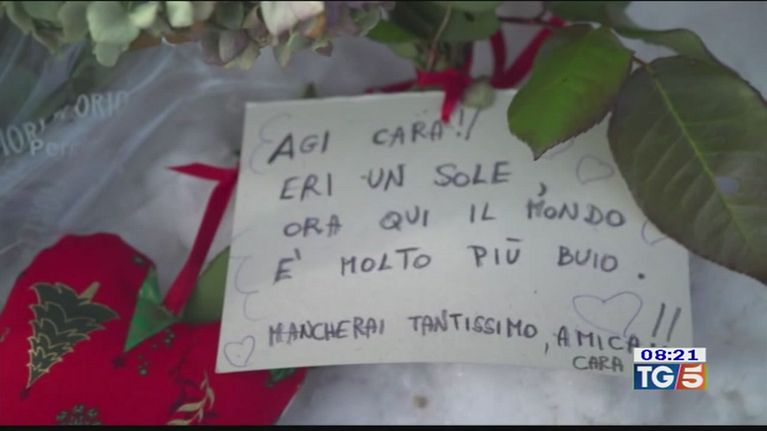 AGI CARA!!
ERI UN SOLE,
ORA QUI IL MONDO
E' MOLTO PIÙ BUIO.
MANCHERAI TANTISSIMO, AMICA!!
CARA
08:21
TG5